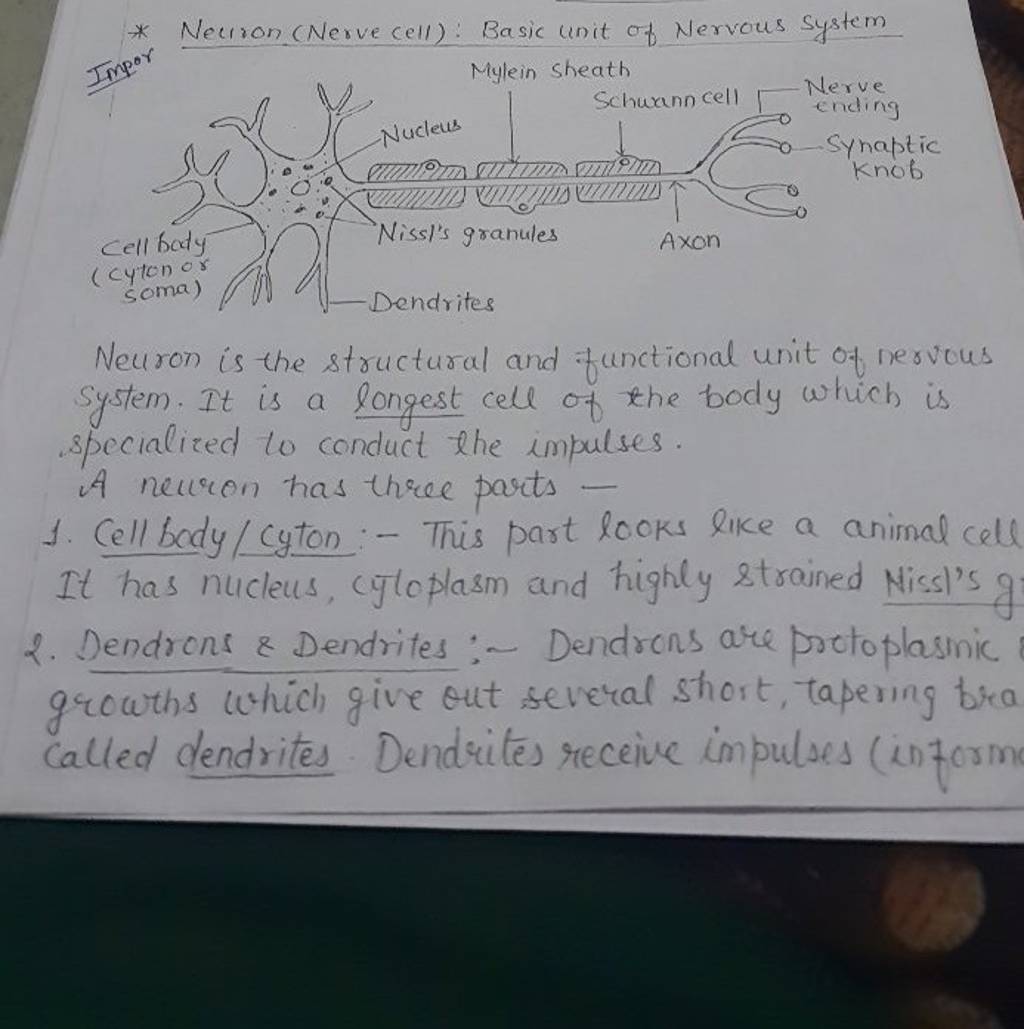 * Neuron (Nerve cell): Basic unit of Nervous System
Impor
Mylein Sheath
Schwann cell
Nerve ending
Nucleus
Synaptic Knob
Nissl's granules
Axon
Cell body
(Cyton or
soma)
Dendrites
Neuron is the structural and functional unit of nervous
System. It is a longest cell of the body which is
specialized to conduct the impulses.
A neuron has three parts —
1. Cell body / Cyton :- This part looks like a animal cell
It has nucleus, cytoplasm and highly strained Nissl's g
2. Dendrons & Dendrites :- Dendrons are protoplasmic
growths which give out several short, tapering bra
Called dendrites. Dendrites receive impulses (inform